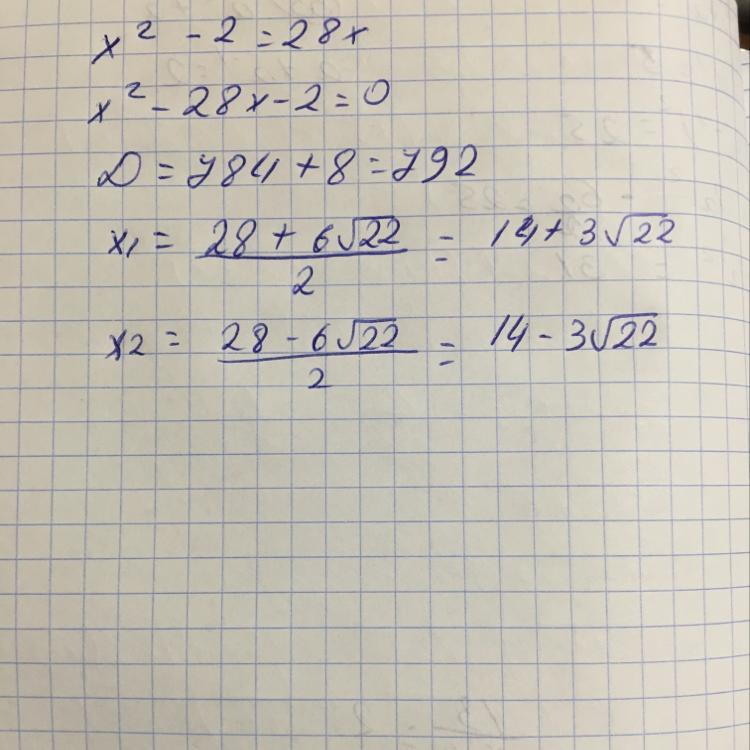 x² - 2 = 28x
x² - 28x - 2 = 0
D = 784 + 8 = 792
x1 = (28 + 6√22)/2 = 14 + 3√22
x2 = (28 - 6√22)/2 = 14 - 3√22